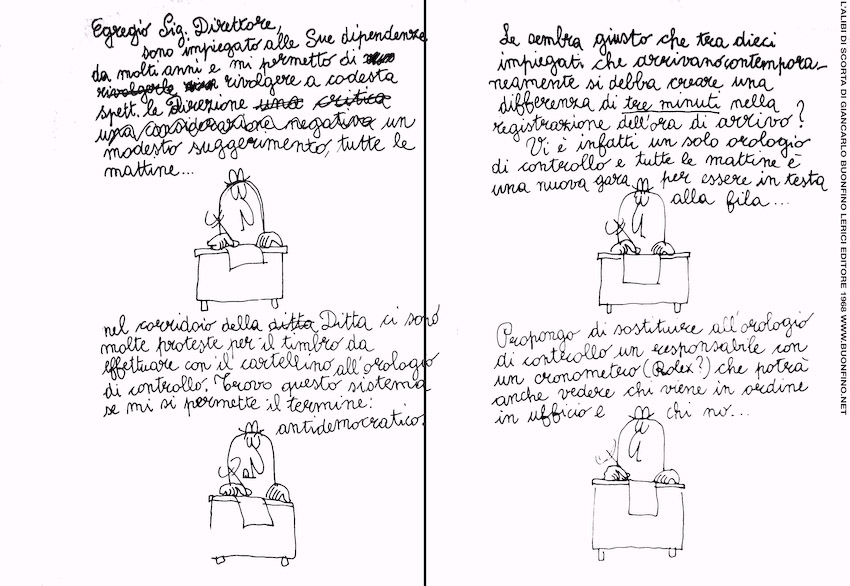 Egregio Sig. Direttore,
sono impiegato alle Sue dipendenze
da molti anni e mi permetto di
rivolgerle rivolgere a codesta
spett. le Direzione una critica
una considerazione negativa un
modesto suggerimento, tutte le
mattine...
nel corridoio della ditta Ditta ci sono
molte proteste per il timbro da
effettuare con il cartellino all'orologio
di controllo. Trovo questo sistema
se mi si permette il termine:
antidemocratico.
Le sembra giusto che tra dieci
impiegati che arrivano contempora-
neamente si debba creare una
differenza di tre minuti nella
registrazione dell'ora di arrivo?
Vi è infatti un solo orologio
di controllo e tutte le mattine è
una nuova gara per essere in testa
alla fila...
Propongo di sostituire all'orologio
di controllo un responsabile con
un cronometro (Rolex?) che potrà
anche vedere chi viene in ordine
in ufficio e chi no...
L'ALIBI DI SCORTA DI GIANCARLO BUONFINO LERICI EDITORE 1968 WWW.BUONFINO.NET